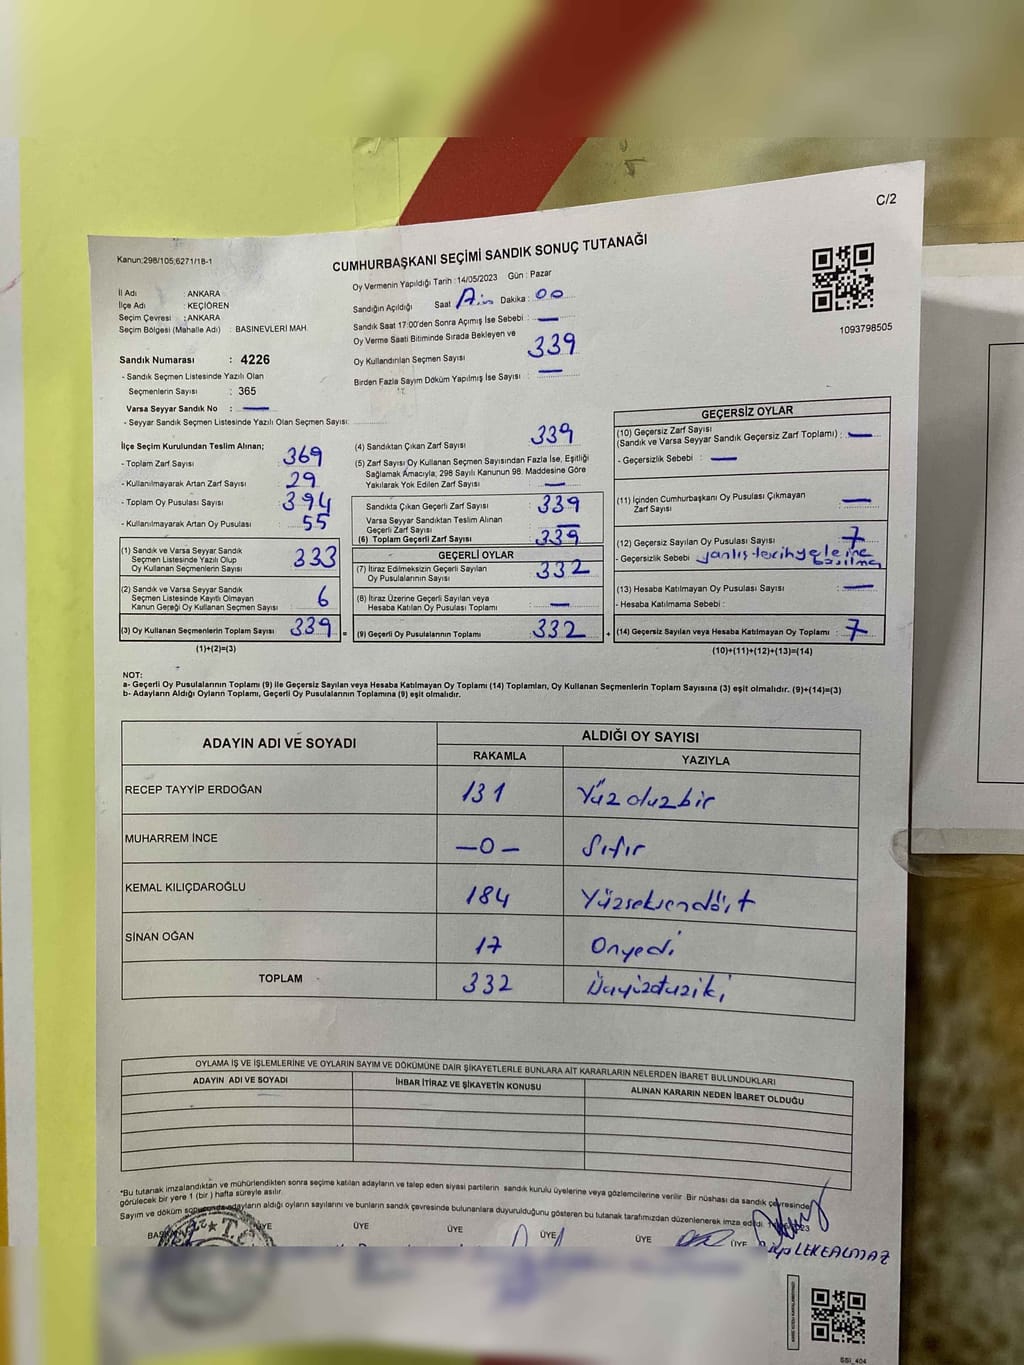 C/2
Kanun:298/105;6271/18-1
CUMHURBAŞKANI SEÇİMİ SANDIK SONUÇ TUTANAĞI
Oy Vermenin Yapıldığı Tarih :14/05/2023 Gün : Pazar
İl Adı : ANKARA
İlçe Adı : KEÇİÖREN
Seçim Çevresi : ANKARA
Seçim Bölgesi (Mahalle Adı) : BASINEVLERİ MAH.
Sandığın Açıldığı Saat Dakika : 00
Sandık Saat 17:00'den Sonra Açımış İse Sebebi : —
Oy Verme Saati Bitiminde Sırada Bekleyen ve
Oy Kullandırılan Seçmen Sayısı 339
Birden Fazla Sayım Döküm Yapılmış İse Sayısı : —
1093798505
Sandık Numarası : 4226
- Sandık Seçmen Listesinde Yazılı Olan
Seçmenlerin Sayısı : 365
Varsa Seyyar Sandık No : —
- Seyyar Sandık Seçmen Listesinde Yazılı Olan Seçmen Sayısı:
İlçe Seçim Kurulundan Teslim Alınan;
- Toplam Zarf Sayısı : 369
- Kullanılmayarak Artan Zarf Sayısı : 29
- Toplam Oy Pusulası Sayısı : 394
- Kullanılmayarak Artan Oy Pusulası : 55
(1) Sandık ve Varsa Seyyar Sandık
Seçmen Listesinde Yazılı Olup
Oy Kullanan Seçmenlerin Sayısı 333
(2) Sandık ve Varsa Seyyar Sandık
Seçmen Listesinde Kayıtlı Olmayan
Kanun Gereği Oy Kullanan Seçmen Sayısı 6
(3) Oy Kullanan Seçmenlerin Toplam Sayısı 339 =
(1)+(2)=(3)
(4) Sandıktan Çıkan Zarf Sayısı 339
(5) Zarf Sayısı Oy Kullanan Seçmen Sayısından Fazla İse, Eşitliği
Sağlamak Amacıyla, 298 Sayılı Kanunun 98. Maddesine Göre
Yakılarak Yok Edilen Zarf Sayısı —
Sandıkta Çıkan Geçerli Zarf Sayısı 339
Varsa Seyyar Sandıktan Teslim Alınan
Geçerli Zarf Sayısı —
(6) Toplam Geçerli Zarf Sayısı 339
GEÇERLİ OYLAR
(7) İtiraz Edilmeksizin Geçerli Sayılan
Oy Pusulalarının Sayısı 332
(8) İtiraz Üzerine Geçerli Sayılan veya
Hesaba Katılan Oy Pusulası Toplamı —
(9) Geçerli Oy Pusulalarının Toplamı 332 +
GEÇERSİZ OYLAR
(10) Geçersiz Zarf Sayısı
(Sandık ve Varsa Seyyar Sandık Geçersiz Zarf Toplamı) : —
- Geçersizlik Sebebi : —
(11) İçinden Cumhurbaşkanı Oy Pusulası Çıkmayan
Zarf Sayısı —
(12) Geçersiz Sayılan Oy Pusulası Sayısı 7
- Geçersizlik Sebebi yanlış
(13) Hesaba Katılmayan Oy Pusulası Sayısı —
- Hesaba Katılmama Sebebi :
(14) Geçersiz Sayılan veya Hesaba Katılmayan Oy Toplamı : 7
(10)+(11)+(12)+(13)=(14)
NOT:
a- Geçerli Oy Pusulalarının Toplamı (9) ile Geçersiz Sayılan veya Hesaba Katılmayan Oy Toplamı (14) Toplamları, Oy Kullanan Seçmenlerin Toplam Sayısına (3) eşit olmalıdır. (9)+(14)=(3)
b- Adayların Aldığı Oyların Toplamı, Geçerli Oy Pusulalarının Toplamına (9) eşit olmalıdır.
ADAYIN ADI VE SOYADI ALDIĞI OY SAYISI
RAKAMLA YAZIYLA
RECEP TAYYİP ERDOĞAN 131 Yüzotuzbir
MUHARREM İNCE —0— Sıfır
KEMAL KILIÇDAROĞLU 184 Yüzseksendört
SİNAN OĞAN 17 Onyedi
TOPLAM 332 Üçyüzotuziki
OYLAMA İŞ VE İŞLEMLERİNE VE OYLARIN SAYIM VE DÖKÜMÜNE DAİR ŞİKAYETLERLE BUNLARA AİT KARARLARIN NELERDEN İBARET BULUNDUKLARI
ADAYIN ADI VE SOYADI İHBAR İTİRAZ VE ŞİKAYETİN KONUSU ALINAN KARARIN NEDEN İBARET OLDUĞU
*Bu tutanak imzalandıktan ve mühürlendikten sonra seçime katılan adayların ve talep eden siyasi partilerin sandık kurulu üyelerine veya gözlemcilerine verilir. Bir nüshası da sandık çevresinde
görülecek bir yere 1 (bir) hafta süreyle asılır.
Sayım ve döküm sonucunda adayların aldığı oyların sayılarını ve bunların sandık çevresinde bulunanlara duyurulduğunu gösteren bu tutanak tarafımızdan düzenlenerek imza edildi.
ÜYE ÜYE ÜYE ÜYE ÜYE ÜYE
LEKEALMAZ
SSİ_404